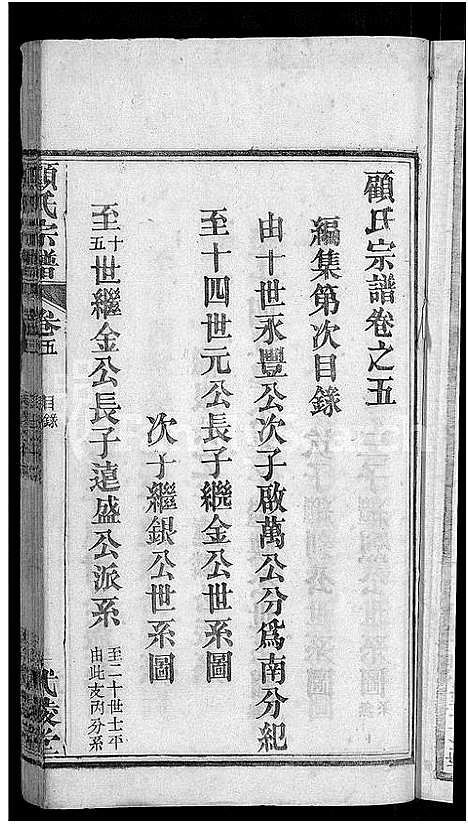 顧氏宗譜卷之五
編集第次目錄
由十世永豐公次子啟萬公分爲南分紀
至十四世元公長子繼金公世系圖
次子繼銀公世系圖
至十五世繼金公長子蓮盛公派系
至二十世士平
由此支丙分系
顧氏宗譜
卷五
目錄
武陵堂